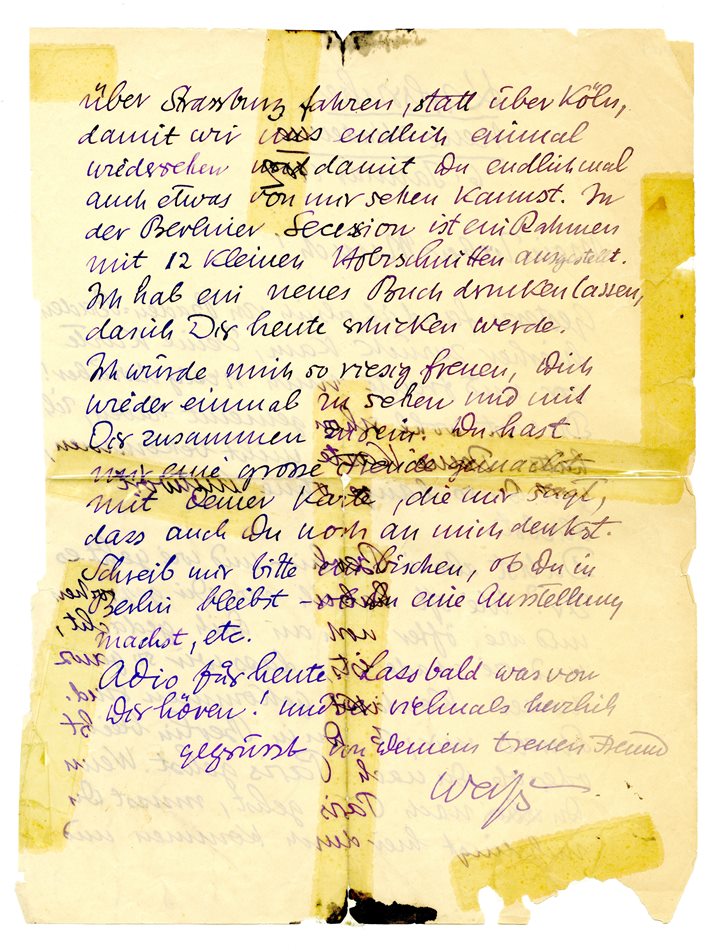 über Strassburg fahren, statt über Köln,
damit wir uns endlich einmal
wiedersehen und damit Du endlich mal
auch etwas von mir sehen kannst. In
der Berliner Secession ist ein Rahmen
mit 12 kleinen Holzschnitten ausgestellt.
Ich hab ein neues Buch drucken lassen,
das ich Dir heute schicken werde.
Ich würde mich so riesig freuen, Dich
wieder einmal zu sehen und mit
Dir zusammen zu sein. Du hast
mir eine grosse Freude gemacht
mit Deiner Karte, die mir sagt,
dass auch Du noch an mich denkst.
Schreib mir bitte ein bischen, ob Du in
Berlin bleibst – ob Du eine Ausstellung
machst, etc.
Adio für heute Lass bald was von
Dir hören! und sei vielmals herzlich
gegrüsst von Deinem treuen Freund